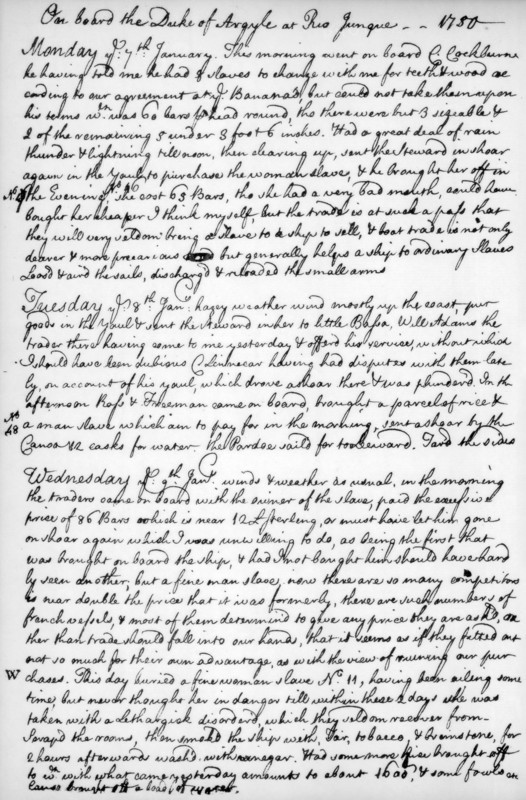 On board the Duke of Argyle at Rio Junque - - 1750
Monday ye 7th January. This morning went on board C. Cockburne
he having told me he had 8 slaves to change with me for teeth & wood ac
cording to our agreement at ye Bananas but could not take them upon
his terms wh was 60 bars pr head round, tho there were but 3 sizeable &
2 of the remaining 5 under 3 foot 6 inches. Had a great deal of rain
thunder & lightning till noon, then clearing up, sent the Steward in shoar
again in the Yaul to purchase the woman slave, & he brought her off in
the Evening, she cost 63 Bars, tho she had a very bad mouth, could have
bought her cheaper I think myself but the trade is at such a pass that
they will very seldom bring a slave to a ship to sell, & boat trade is not only
dearer & more precarious but generally helps a ship to ordinary slaves
Loosd & aird the sails, dischargd & reloaded the small arms
Tuesday ye 8th Jany hazey weather wind mostly up the coast, put
goods in the Yaul & sent the Steward in her to little Bassa, Will Adams the
trader there having come to me yesterday & offerd his services, without which
I should have been dubious C. having had disputes with them late
ly, on account of his yaul, which drove ashoar there & was plunderd. In the
afternoon Ross & Freeman came on board, brought a parcel of rice &
No
48
a man slave which am to pay for in the morning, sent ashoar by the
Canoa 42 casks for water. The Pardoe saild for to leeward. Tard the sides
Wednesday ye 9th Jany winds & weather as usual, in the morning
the traders came on board with the owner of the slave, paid the excessive
price of 86 Bars which is near 12£ sterling, or must have let him gone
on shoar again which I was unwilling to do, as being the first that
was brought on board the ship, & had I not bought him should have hard
ly seen another, but a fine man slave, now there are so many competitors
is near double the price that it was formerly, there are such numbers of
french vessels, & most of them determind to give any price they are askd, ra
ther than trade should fall into our hands, that it seems as if they fitted out
not so much for their own advantage, as with the view of ruining our pur
W
chases. This day buried a fine woman slave No 11, having been ailing some
time, but never thought her in danger till within these 2 days she was
taken with a Lethargick disorder, which they seldom recover from.
Scrap'd the rooms, then smoakd the ship with Tar, tobacco, & brimstone, for
2 hours afterwards washd with vinegar. Had some more rice brought off
to wh with what came yesterday amounts to about 1600, & some fowls
Canoo brought off a load of water.